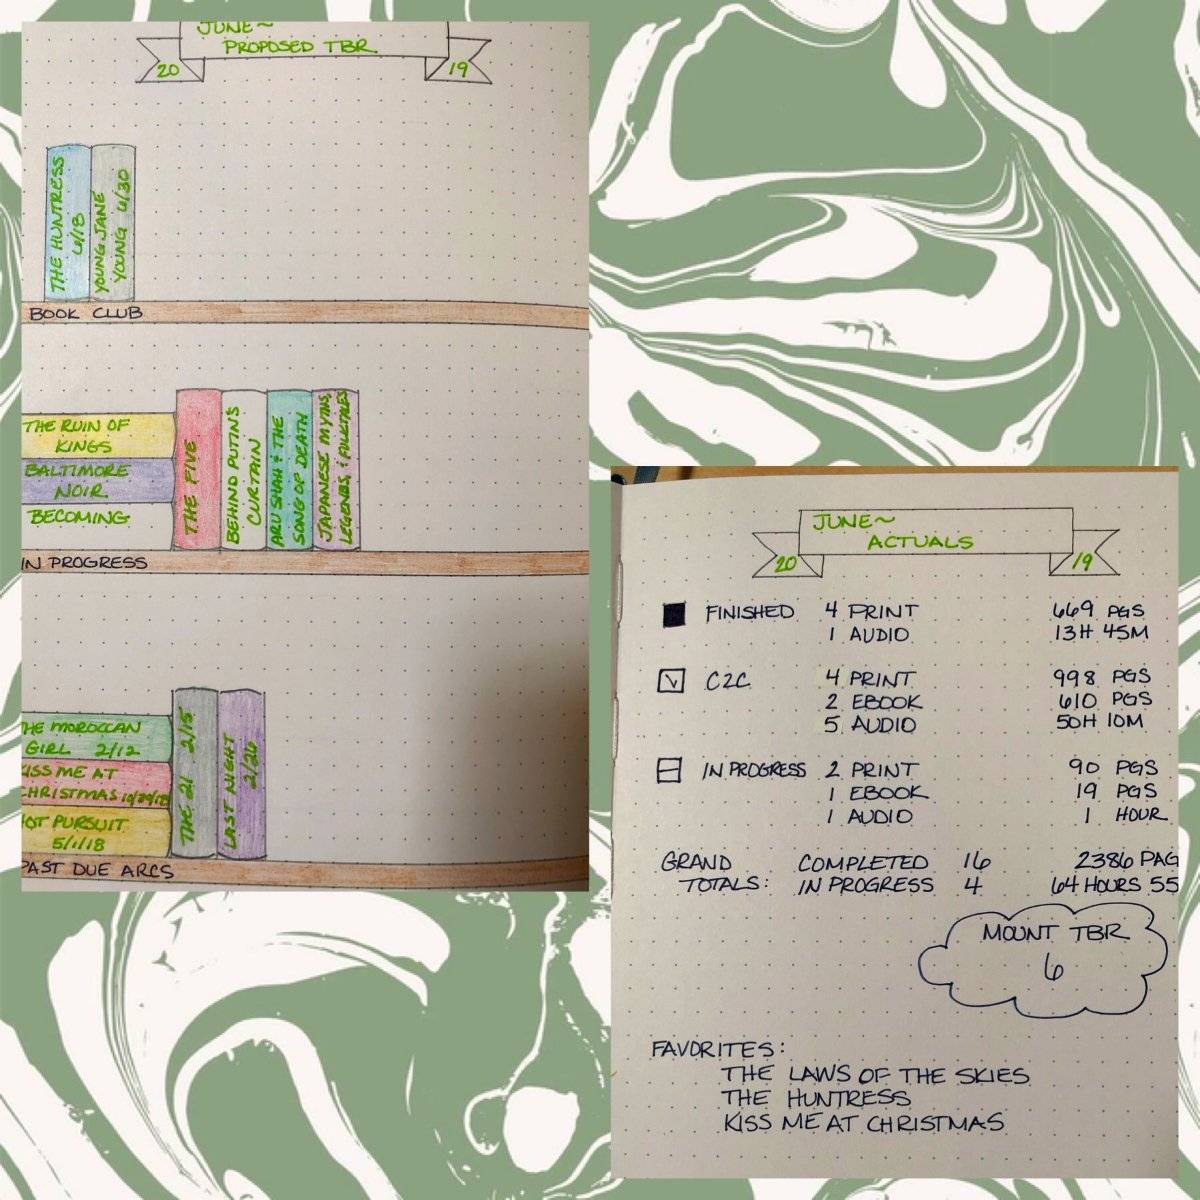 JUNE~
PROPOSED TBR
20 19
THE HUNTRESS
6/18
YOUNG JANE
YOUNG 6/30
BOOK CLUB
THE RUIN OF
KINGS
BALTIMORE
NOIR
BECOMING
THE FIVE
BEHIND PUTIN'S
CURTAIN
ARU SHAH & THE
SONG OF DEATH
JAPANESE MYTHS,
LEGENDS, & FOLKTALES
IN PROGRESS
THE MOROCCAN
GIRL 2/12
KISS ME AT
CHRISTMAS
HOT PURSUIT
5/1/18
THE 21 2/15
LAST NIGHT
2/26
PAST DUE ARCS
JUNE~
ACTUALS
20 19
FINISHED 4 PRINT 669 PGS
1 AUDIO 13H 45M
C2C 4 PRINT 998 PGS
2 EBOOK 610 PGS
5 AUDIO 50H 10M
IN PROGRESS 2 PRINT 90 PGS
1 EBOOK 19 PGS
1 AUDIO 1 HOUR
GRAND COMPLETED 16 2386 PAG
TOTALS: IN PROGRESS 4 64 HOURS 55
MOUNT TBR
6
FAVORITES:
THE LAWS OF THE SKIES
THE HUNTRESS
KISS ME AT CHRISTMAS